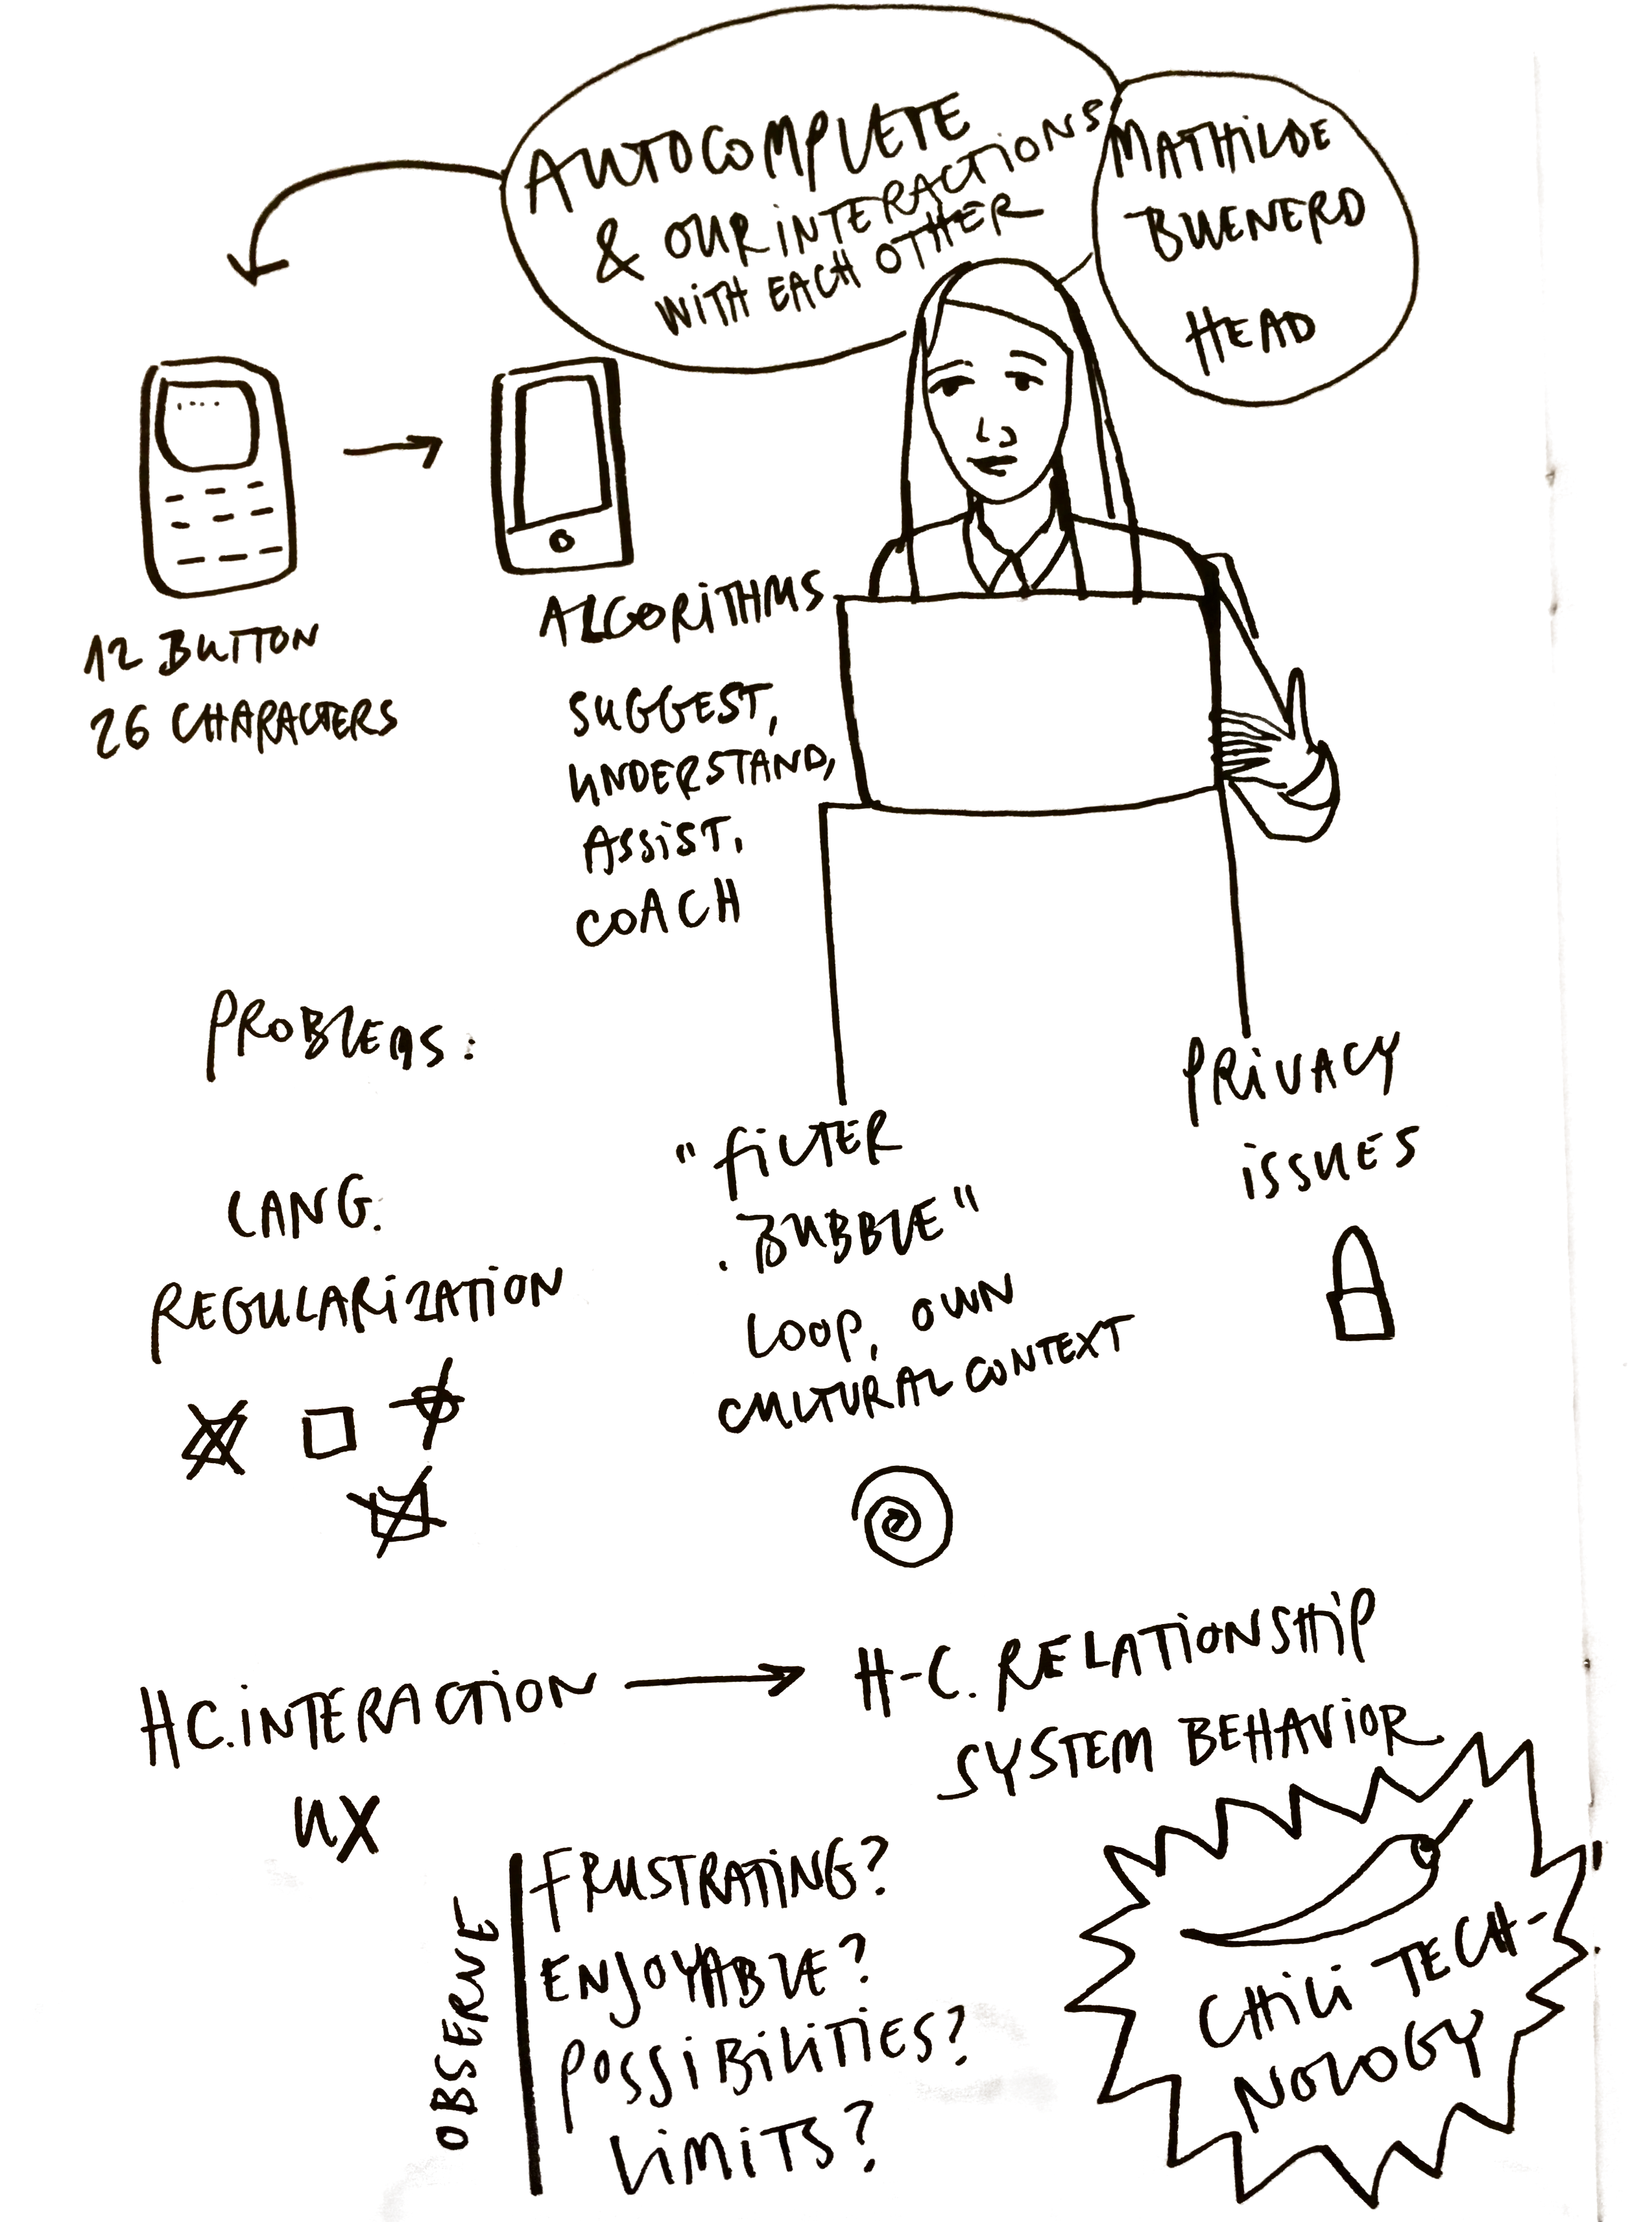 AUTOCOMPLETE
& OUR INTERACTIONS
WITH EACH OTHER
MATHILDE
BUENERD
HEAD
12 BUTTON
26 CHARACTERS
ALGORITHMS
SUGGEST,
UNDERSTAND,
ASSIST,
COACH
PROBLEMS:
LANG.
REGULARIZATION
"FILTER
BUBBLE"
LOOP, OWN
CULTURAL CONTEXT
PRIVACY
ISSUES
HC.INTERACTION
UX
H-C. RELATIONSHIP
SYSTEM BEHAVIOR
OBSERVE
FRUSTRATING?
ENJOYABLE?
POSSIBILITIES?
LIMITS?
CHILI TECH-
NOLOGY